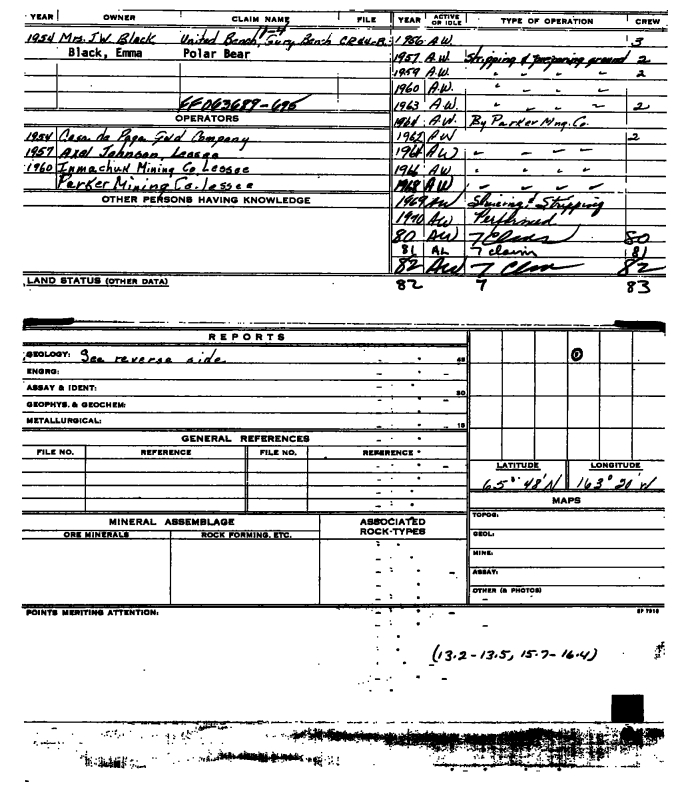 YEAR OWNER CLAIM NAME FILE
1954 Mrs. J.W. Black United Bench, Bench
Black, Emma Polar Bear
FF063689-695
OPERATORS
1954 Casa de Paga Gold Company
1957 Axel Johnson, Lessee
1960 Inmachuk Mining Co. Lessee
Parker Mining Co. lessee
OTHER PERSONS HAVING KNOWLEDGE
LAND STATUS (OTHER DATA)
YEAR ACTIVE OR IDLE TYPE OF OPERATION CREW
1956 A.W. 3
1957 A.W. Stripping & preparing ground 2
1959 A.W. " " " " 2
1960 A.W. " " " "
1963 A.W. " " " " 2
A.W. By Parker Mng. Co.
AW 2
AW
1966 AW " " " "
1968 AW
1969 AW Sluicing & Stripping
1970 AW Performed
80 AW 7 Claims 80
81 AL 7 claim 81
82 AW 7 Clm 82
82 7 83
REPORTS
GEOLOGY: See reverse side
ENGRG:
ASSAY & IDENT:
GEOPHYS. & GEOCHEM:
METALLURGICAL:
45
30
15
GENERAL REFERENCES
FILE NO. REFERENCE FILE NO. REFERENCE
MINERAL ASSEMBLAGE ASSOCIATED ROCK-TYPES
ORE MINERALS ROCK FORMING, ETC.
LATITUDE LONGITUDE
65° 48' N 163° 20' W
MAPS
TOPOG:
GEOL:
MINE:
ASSAY:
OTHER (& PHOTOS)
POINTS MERITING ATTENTION:
(13.2-13.5, 15.7-16.4)